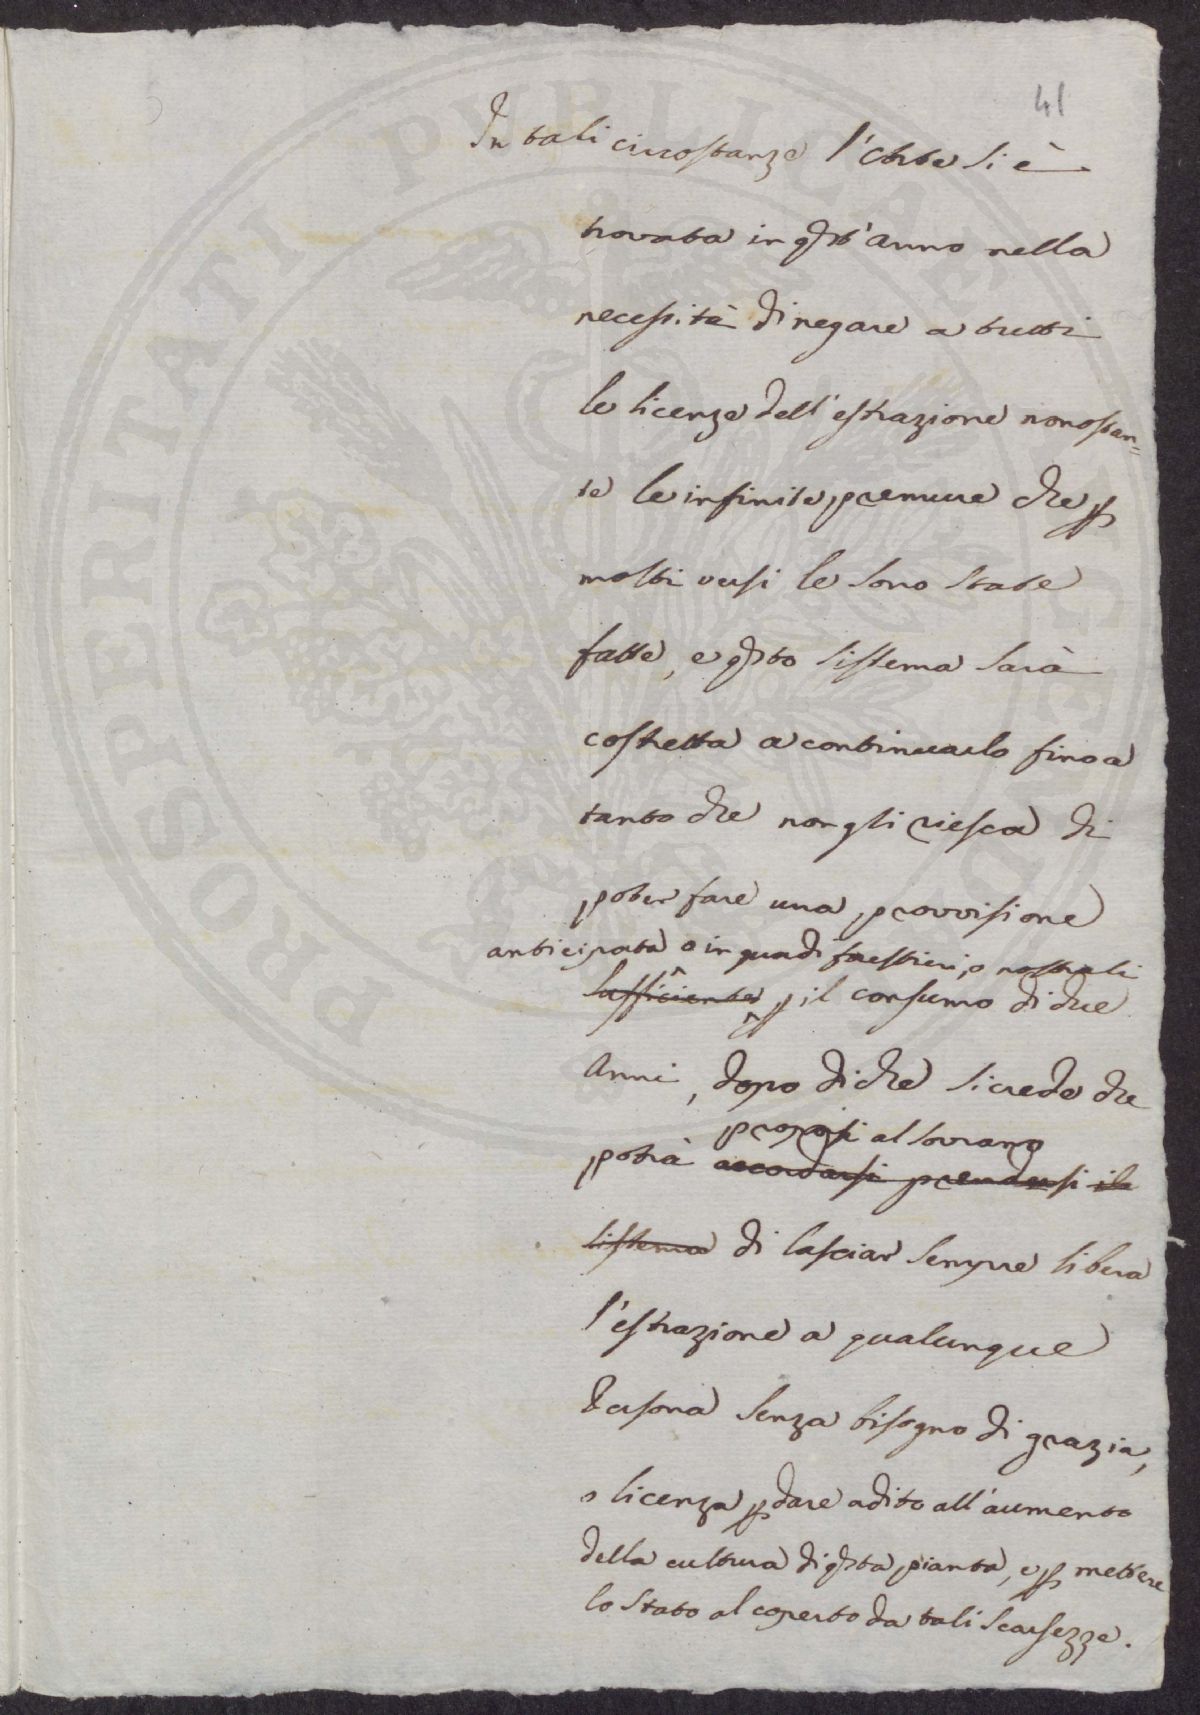 41
In tali circostanze l'Arte si è
trovata in qst'anno nella
necessità di negare a tutti
le licenze dell'estrazione nonostan=
te le infinite premure che p
molti versi le sono state
fatte, e qsto sistema sarà
costretta a continuarlo fino a
tanto che non gli riesca di
poter fare una provvisione
anticipata o in quadi forestieri, o nostrali
sufficiente p il consumo di due
Anni, dopo di che si crede che
proporsi al Sovrano
potrà accordarsi prendersi il
sistema di lasciar sempre libera
l'estrazione a qualunque
Persona senza bisogno di grazia,
o licenza p dare adito all'aumento
della cultura di qsta pianta, e p mettere
lo Stato al coperto da tali scarsezze.
PROSPERITATI PVBLICAE